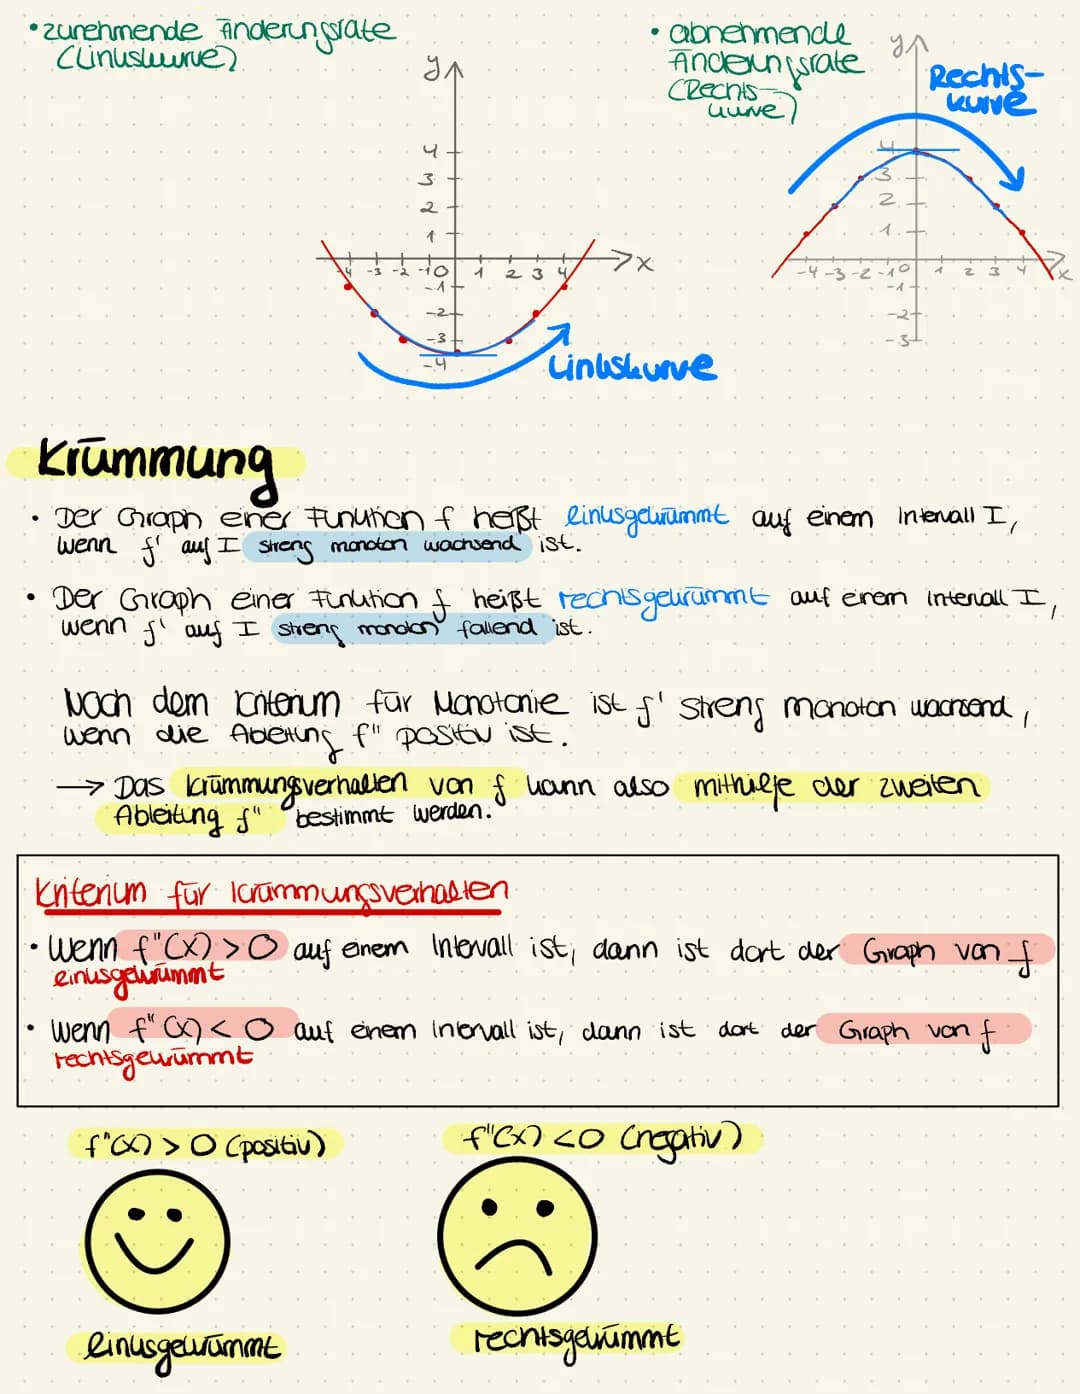 • zunehmende Änderungsrate
(Linkskurve)
• abnehmende
Änderungsrate
(Rechts-
kurve)
y
Rechts-
kurve
y
4
3
2
1
-4 -3 -2 -1 0 1 2 3 4 x
-1
-2
-3
-4
Linkskurve
4
3
2
1
-4 -3 -2 -1 0 1 2 3 4 x
-1
-2
-3
Krümmung
• Der Graph einer Funktion f heißt linksgekrümmt auf einem Intervall I,
wenn f' auf I streng monoton wachsend ist.
• Der Graph einer Funktion f heißt rechtsgekrümmt auf einem Intervall I,
wenn f' auf I streng monoton fallend ist.
Nach dem Kriterium für Monotonie ist f' streng monoton wachsend,
wenn die Ableitung f" positiv ist.
→ Das Krümmungsverhalten von f kann also mithilfe der zweiten
Ableitung f" bestimmt werden.
Kriterium für Krümmungsverhalten
• Wenn f"(x) > 0 auf einem Intervall ist, dann ist dort der Graph von f
linksgekrümmt
• Wenn f"(x) < 0 auf einem Intervall ist, dann ist dort der Graph von f
rechtsgekrümmt
f"(x) > 0 (positiv)
f"(x) < 0 (negativ)
linksgekrümmt
rechtsgekrümmt